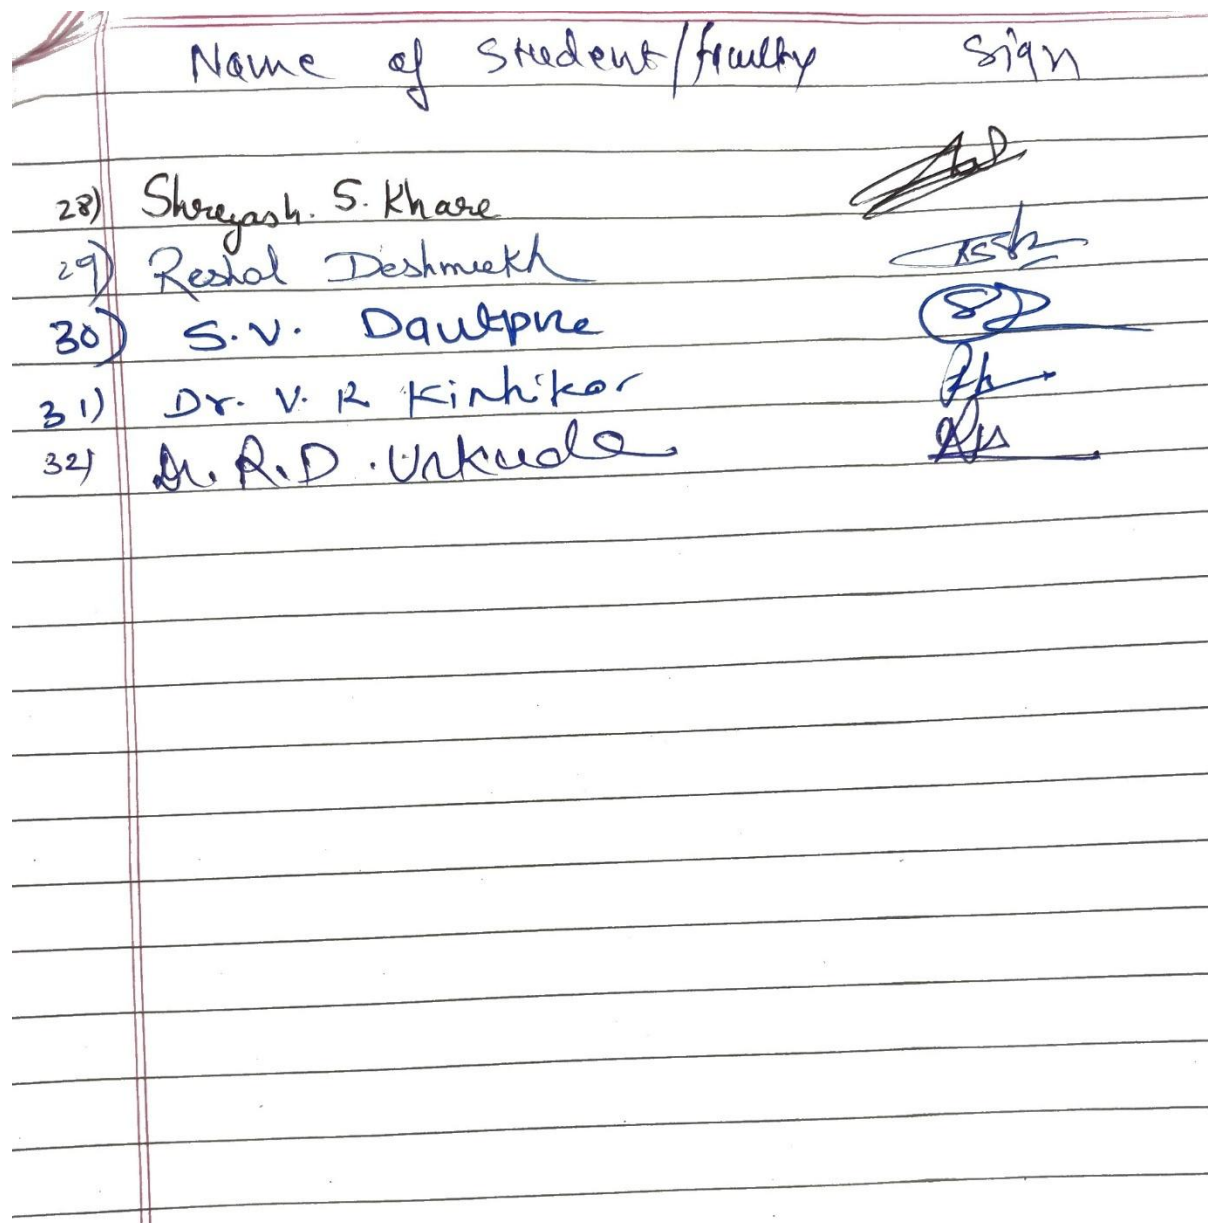 Name of Student/faculty Sign
28) Shreyash. S. Khare
29) Reshal Deshmukh
30) S.V.
31) Dr. V. R Kinhikar
32) Dr. R.D. Urkude